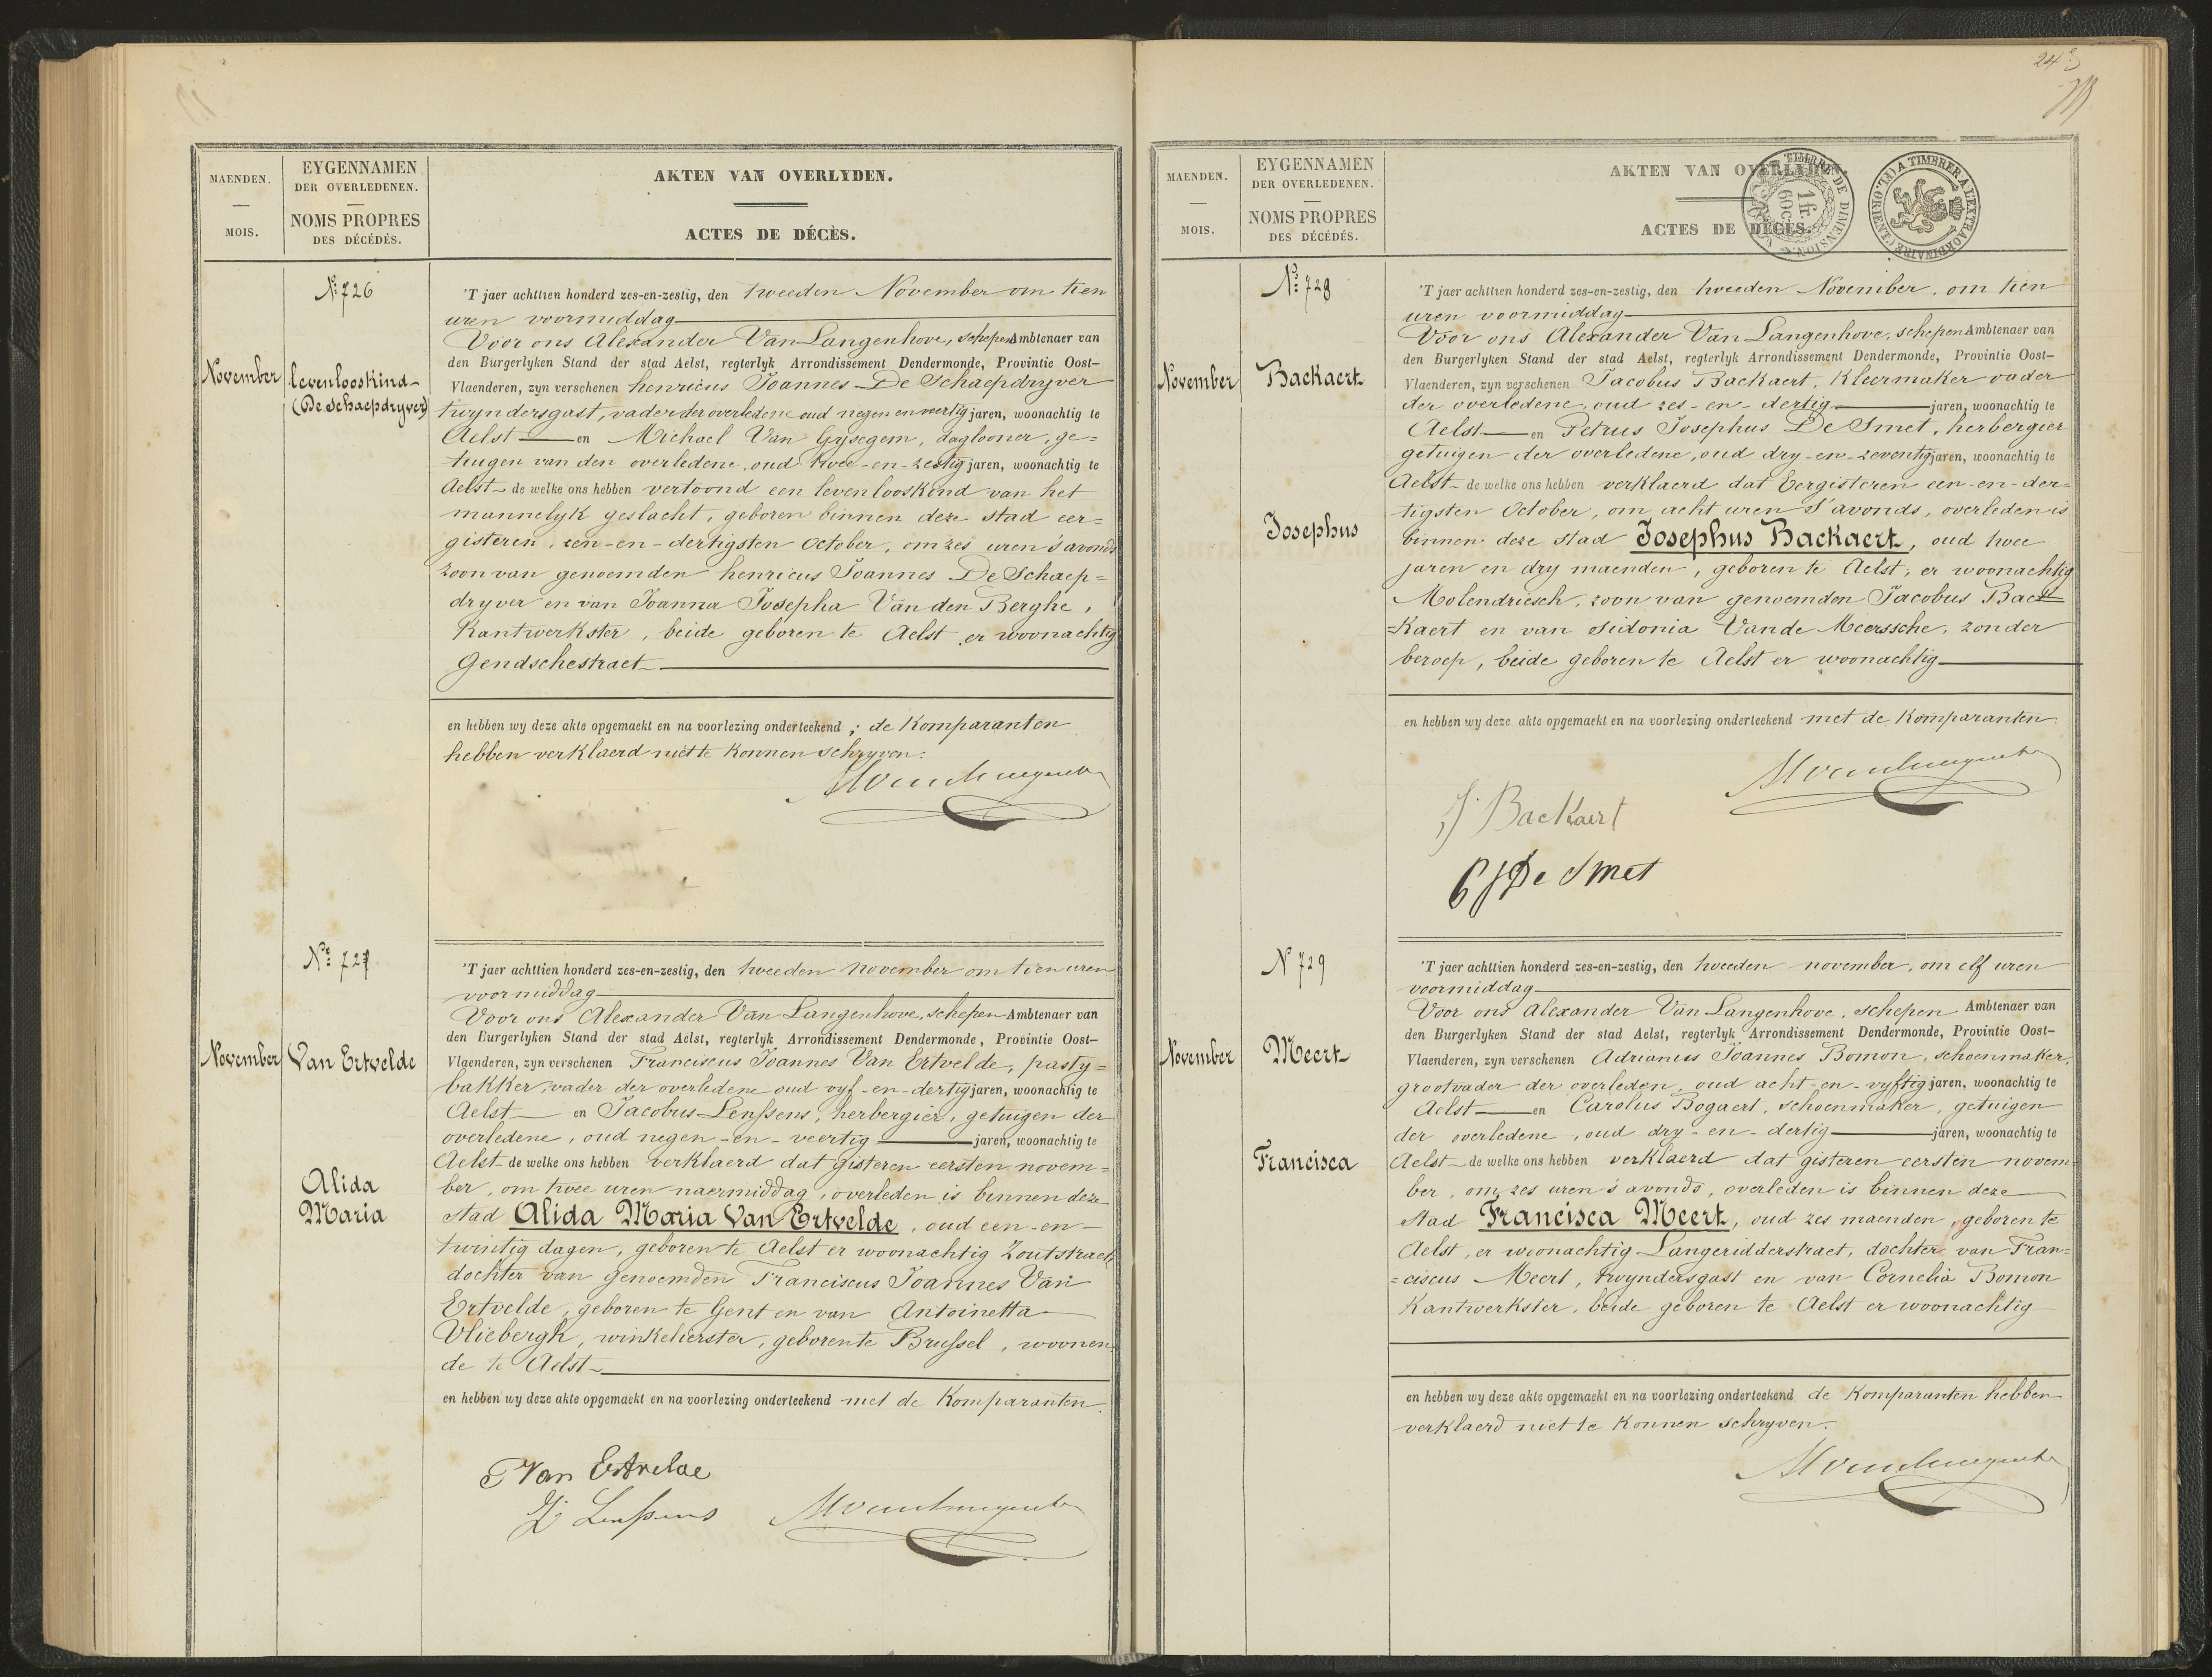 MAENDEN.
MOIS.
EYGENNAMEN
DER OVERLEDENEN.
NOMS PROPRES
DES DÉCÉDÉS.
AKTEN VAN OVERLYDEN.
ACTES DE DÉCÈS.
N: 726
November
levenlooskind
(De Schaepdryver)
'T jaer achttien honderd zes-en-zestig, den tweeden November om tien
uren voormiddag
Voor ons Alexander Van Langenhove, schepen Ambtenaer van
den Burgerlyken Stand der stad Aelst, regterlyk Arrondissement Dendermonde, Provintie Oost-
Vlaenderen, zyn verschenen henricus Joannes De Schaepdryver
twyndersgast, vader der overledene oud negen en veertig jaren, woonachtig te
Aelst en Michael Van Gysegem, daglooner, ge=
tuigen van den overledene, oud twee-en-zestig jaren, woonachtig te
Aelst de welke ons hebben vertoond een levenlooskind van het
mannelyk geslacht, geboren binnen deze stad eer=
gisteren, een-en-dertigsten October, om zes uren s'avonds
zoon van genoemden henricus Joannes De Schaep=
dryver en van Joanna Josepha Van den Berghe,
Kantwerkster, beide geboren te Aelst er woonachtig
Gendschestraet
en hebben wy deze akte opgemaekt en na voorlezing onderteekend ; de Komparanten
hebben verklaerd niet te konnen schryven.
N: 727
November
Van Ertvelde
Alida
Maria
'T jaer achttien honderd zes-en-zestig, den tweeden november om tien uren
voormiddag
Voor ons Alexander Van Langenhove, schepen Ambtenaer van
den Burgerlyken Stand der stad Aelst, regterlyk Arrondissement Dendermonde, Provintie Oost-
Vlaenderen, zyn verschenen Franciscus Joannes Van Ertvelde, pasty=
bakker, vader der overledene oud vyf-en-dertig jaren, woonachtig te
Aelst en Jacobus Lenssens, herbergier, getuigen der
overledene, oud negen-en-veertig jaren, woonachtig te
Aelst de welke ons hebben verklaerd dat gisteren eersten novem=
ber, om twee uren naermiddag, overleden is binnen deze
stad Alida Maria Van Ertvelde, oud een-en-
twintig dagen, geboren te Aelst er woonachtig Zoutstraet,
dochter van genoemden Franciscus Joannes Van
Ertvelde, geboren te Gent en van Antoinetta
Vliebergh, winkelierster, geboren te Brussel, woonen=
de te Aelst
en hebben wy deze akte opgemaekt en na voorlezing onderteekend met de Komparanten.
F Van Ertvelde
J Lenssens
243
MAENDEN.
MOIS.
EYGENNAMEN
DER OVERLEDENEN.
NOMS PROPRES
DES DÉCÉDÉS.
AKTEN VAN OVERLYDEN.
ACTES DE DÉCÈS.
TIMBRE DE DIMENSION
1 fr.
60 c.
A TIMBRER A L'EXTRAORDINAIRE (FL. ORIENT.)
N: 728
November
Backaert
Josephus
'T jaer achttien honderd zes-en-zestig, den tweeden November, om tien
uren voormiddag
Voor ons Alexander Van Langenhove, schepen Ambtenaer van
den Burgerlyken Stand der stad Aelst, regterlyk Arrondissement Dendermonde, Provintie Oost-
Vlaenderen, zyn verschenen Jacobus Backaert, Kleermaker vader
der overledene, oud zes-en-dertig jaren, woonachtig te
Aelst en Petrus Josephus De Smet, herbergier
getuigen der overledene, oud dry-en-zeventig jaren, woonachtig te
Aelst de welke ons hebben verklaerd dat Eergisteren een-en-der=
tigsten October, om acht uren s'avonds, overleden is
binnen deze stad Josephus Backaert, oud twee
jaren en dry maenden, geboren te Aelst, er woonachtig
Molendriesch, zoon van genoemden Jacobus Bac
=kaert en van Sidonia Vande Meerssche, zonder
beroep, beide geboren te Aelst er woonachtig
en hebben wy deze akte opgemaekt en na voorlezing onderteekend met de Komparanten.
J Backaert
P J De Smet
N 729
November
Meert
Francisca
'T jaer achttien honderd zes-en-zestig, den tweeden november, om elf uren
voormiddag
Voor ons Alexander Van Langenhove, schepen Ambtenaer van
den Burgerlyken Stand der stad Aelst, regterlyk Arrondissement Dendermonde, Provintie Oost-
Vlaenderen, zyn verschenen Adrianus Joannes Bomon, schoenmaker,
grootvader der overleden, oud acht-en-vyftig jaren, woonachtig te
Aelst en Carolus Bogaert, schoenmaker, getuigen
der overledene, oud dry-en-dertig jaren, woonachtig te
Aelst de welke ons hebben verklaerd dat gisteren eersten novem=
ber, om zes uren s'avonds, overleden is binnen deze
stad Francisca Meert, oud zes maenden, geboren te
Aelst, er woonachtig Langeridderstraet, dochter van Fran=
=ciscus Meert, twyndersgast en van Cornelia Bomon
Kantwerkster, beide geboren te Aelst er woonachtig
en hebben wy deze akte opgemaekt en na voorlezing onderteekend de Komparanten hebben
verklaerd niet te konnen schryven.